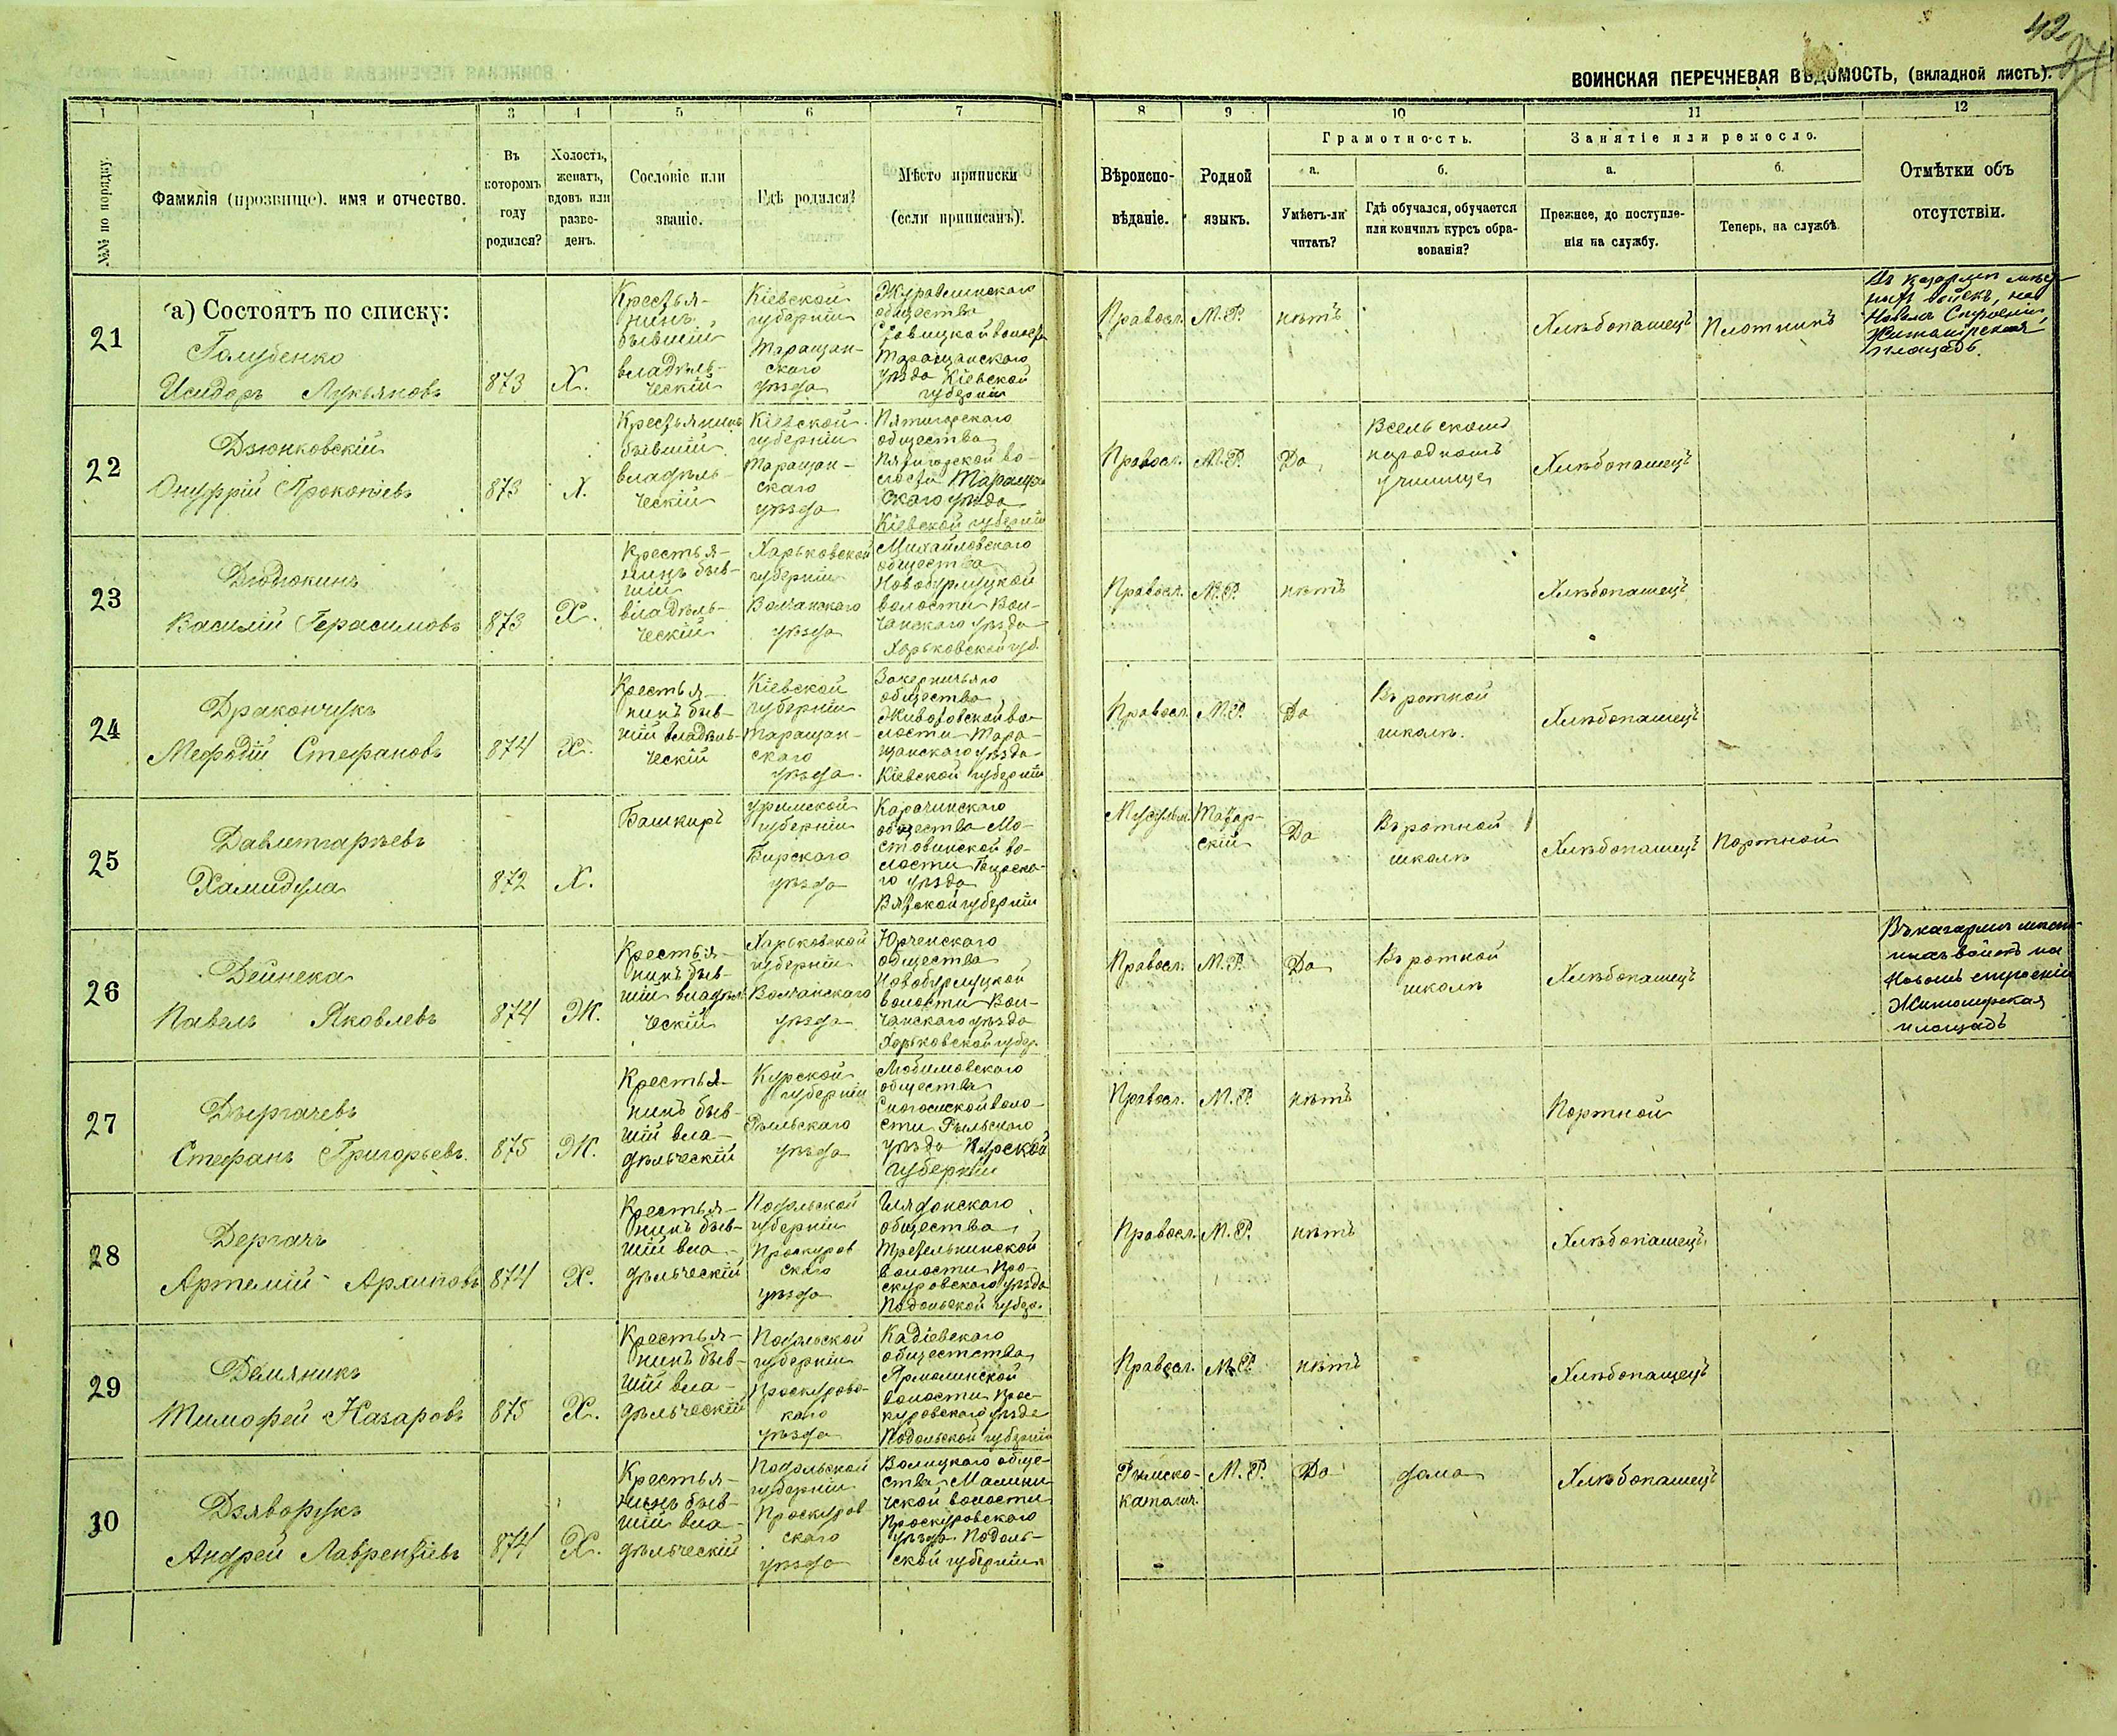 42
37
ВОИНСКАЯ ПЕРЕЧНЕВАЯ ВѢДОМОСТЬ, (вкладной листъ).
1 1 3 4 5 6 7 8 9 10 11 12
№№ по порядку.
Фамилія (прозвище), имя и отчество.
Въ
которомъ
году
родился?
Холостъ,
женатъ,
вдовъ или
разве-
денъ.
Сословіе или
званіе.
Гдѣ родился?
Мѣсто приписки
(если приписанъ).
Вѣроиспо-
вѣданіе.
Родной
языкъ.
Грамотность.
а.
Умѣетъ-ли
читать?
б.
Гдѣ обучался, обучается
или кончилъ курсъ обра-
зованія?
Занятіе или ремесло.
а.
Прежнее, до поступле-
нія на службу.
б.
Теперь, на службѣ.
Отмѣтки объ
отсутствіи.
21
а) Состоятъ по списку:
Голубенко
Исидоръ Лукьяновъ
873
Х.
Крестья-
нинъ
бывшій
владѣль-
ческій
Кіевской
губерніи
Таращан-
скаго
уѣзда
Журавлинскаго
общества
волости
Таращанскаго
уѣзда Кіевской
губерніи
Правосл.
М.Р.
нѣтъ
Хлѣбопашецъ
Плотникъ
Въ казармѣ мѣст-
ныхъ войскъ, на
Новомъ Строеніи,
Житомірская
площадь.
22
Дзюнковскій
Онуфрій Прокопіевъ
873
Х.
Крестьянинъ
бывшій
владѣль-
ческій
Кіевской
губерніи
Таращан-
скаго
уѣзда
Пятигорскаго
общества
Пятигорской во-
лости Таращан-
скаго уѣзда
Кіевской губерніи
Правосл.
М.Р.
Да
Всельскомъ
народномъ
училище
Хлѣбопашецъ
23
Дюдюкинъ
Василій Герасимовъ
873
Х.
Крестья-
нинъ быв-
шій
владѣль-
ческій
Харьковской
губерніи
Волчанского
уѣзда
Михайловского
общества
Новобурлуцкой
волости Вол-
чанскаго уѣзда
Харьковской губ.
Правосл.
М.Р.
нѣтъ
Хлѣбопашецъ
24
Дракончукъ
Мефодій Стефановъ
874
Х.
Крестья-
нинъ быв-
шій владѣль-
ческій
Кіевской
губерніи
Таращан-
скаго
уѣзда.
общества
Животовской во-
лости Тара-
щанскаго уѣзда
Кіевской губерніи
Правосл.
М.Р.
Да
Въ ротной
школѣ.
Хлѣбопашецъ
25
Давлетгарѣевъ
Хамидула
872
Х.
Башкиръ
Уфимской
губерніи
Бирскаго
уѣзда
Карачинскаго
общества Мо-
стовинской во-
лости Бирска-
го уѣзда
Вятской губерніи
Мусульм.
Татар-
скій
Да
Въ ротной
школѣ
Хлѣбопашецъ
Портной
26
Дейнека
Павелъ Яковлевъ
874
Ж.
Крестья-
нинъ быв-
шій владѣль-
ческій
Харьковской
губерніи
Волчанского
уѣзда
Юрченскаго
общества
Новобурлуцкой
волости Вол-
чанскаго уѣзда
Харьковской губер.
Правосл.
М.Р.
Да
Въ ротной
школѣ
Хлѣбопашецъ
Въ казармѣ мѣст-
ныхъ войскъ на
Новомъ строеніи
Житомірская
площадь
27
Дьергачевъ
Стефанъ Григорьевъ.
875
Ж.
Крестья-
нинъ быв-
шій вла-
дѣльческій
Курской
губерніи
Рыльскаго
уѣзда
Любимовскаго
общества
Сногостской воло-
сти Рыльскаго
уѣзда Курской
губерніи
Правосл.
М.Р.
нѣтъ
Портной
28
Дергачъ
Артемій Архиповъ
874
Х.
Крестья-
нинъ быв-
шій вла-
дѣльческій
Подольской
губерніи
Проскуров
скаго
уѣзда
общества
Третельникской
волости Про-
скуровскаго уѣзда
Подольской губер.
Правосл.
М.Р.
нѣтъ
Хлѣбопашецъ
29
Демяникъ
Тимофей Назаровъ
875
Х.
Крестья-
нинъ быв-
шій вла-
дѣльческій
Подольской
губерніи
Проскуровс-
каго
уѣзда
Кадіевскаго
общества
Ярмолинской
волости Прос-
куровскаго уѣзда
Подольской губерніи
Правосл.
М.Р.
нѣтъ
Хлѣбопашецъ
30
Дзяворукъ
Андрей Лаврентіевъ
874
Х.
Крестья-
нинъ быв-
шій вла-
дѣльческій
Подольской
губерніи
Проскуров
скаго
уѣзда
Волицкаго обще-
ства Малини
чской волости
Проскуровскаго
уѣзда Подоль-
ской губерніи
Римско-
католич.
М.Р.
Да
дома
Хлѣбопашецъ